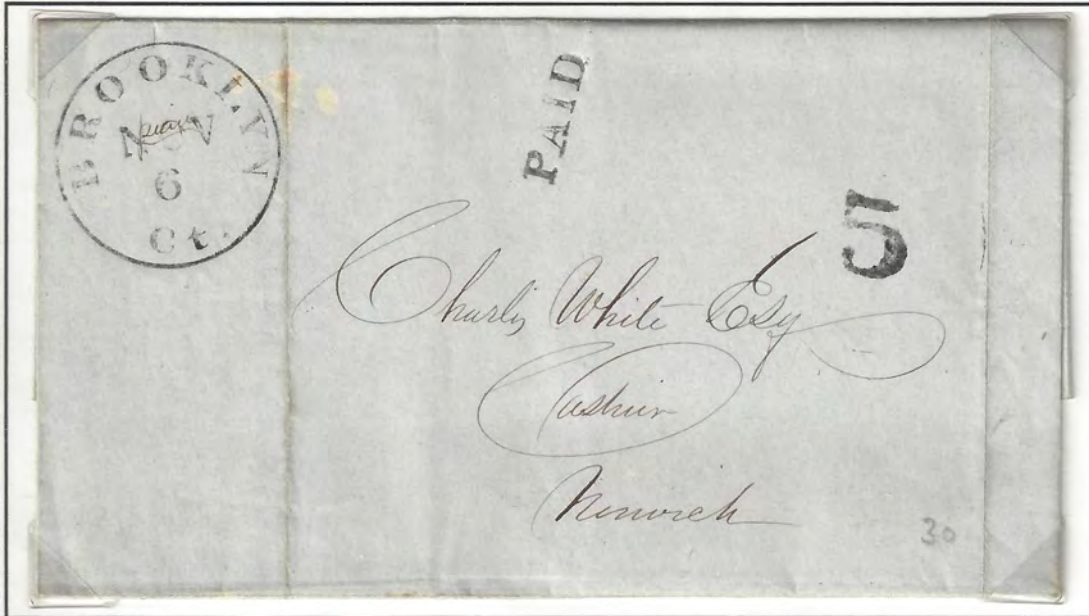 BROOKLYN
NOV
6
Ct.
PAID
5
Charles White Esq
Cashier
Norwich
30